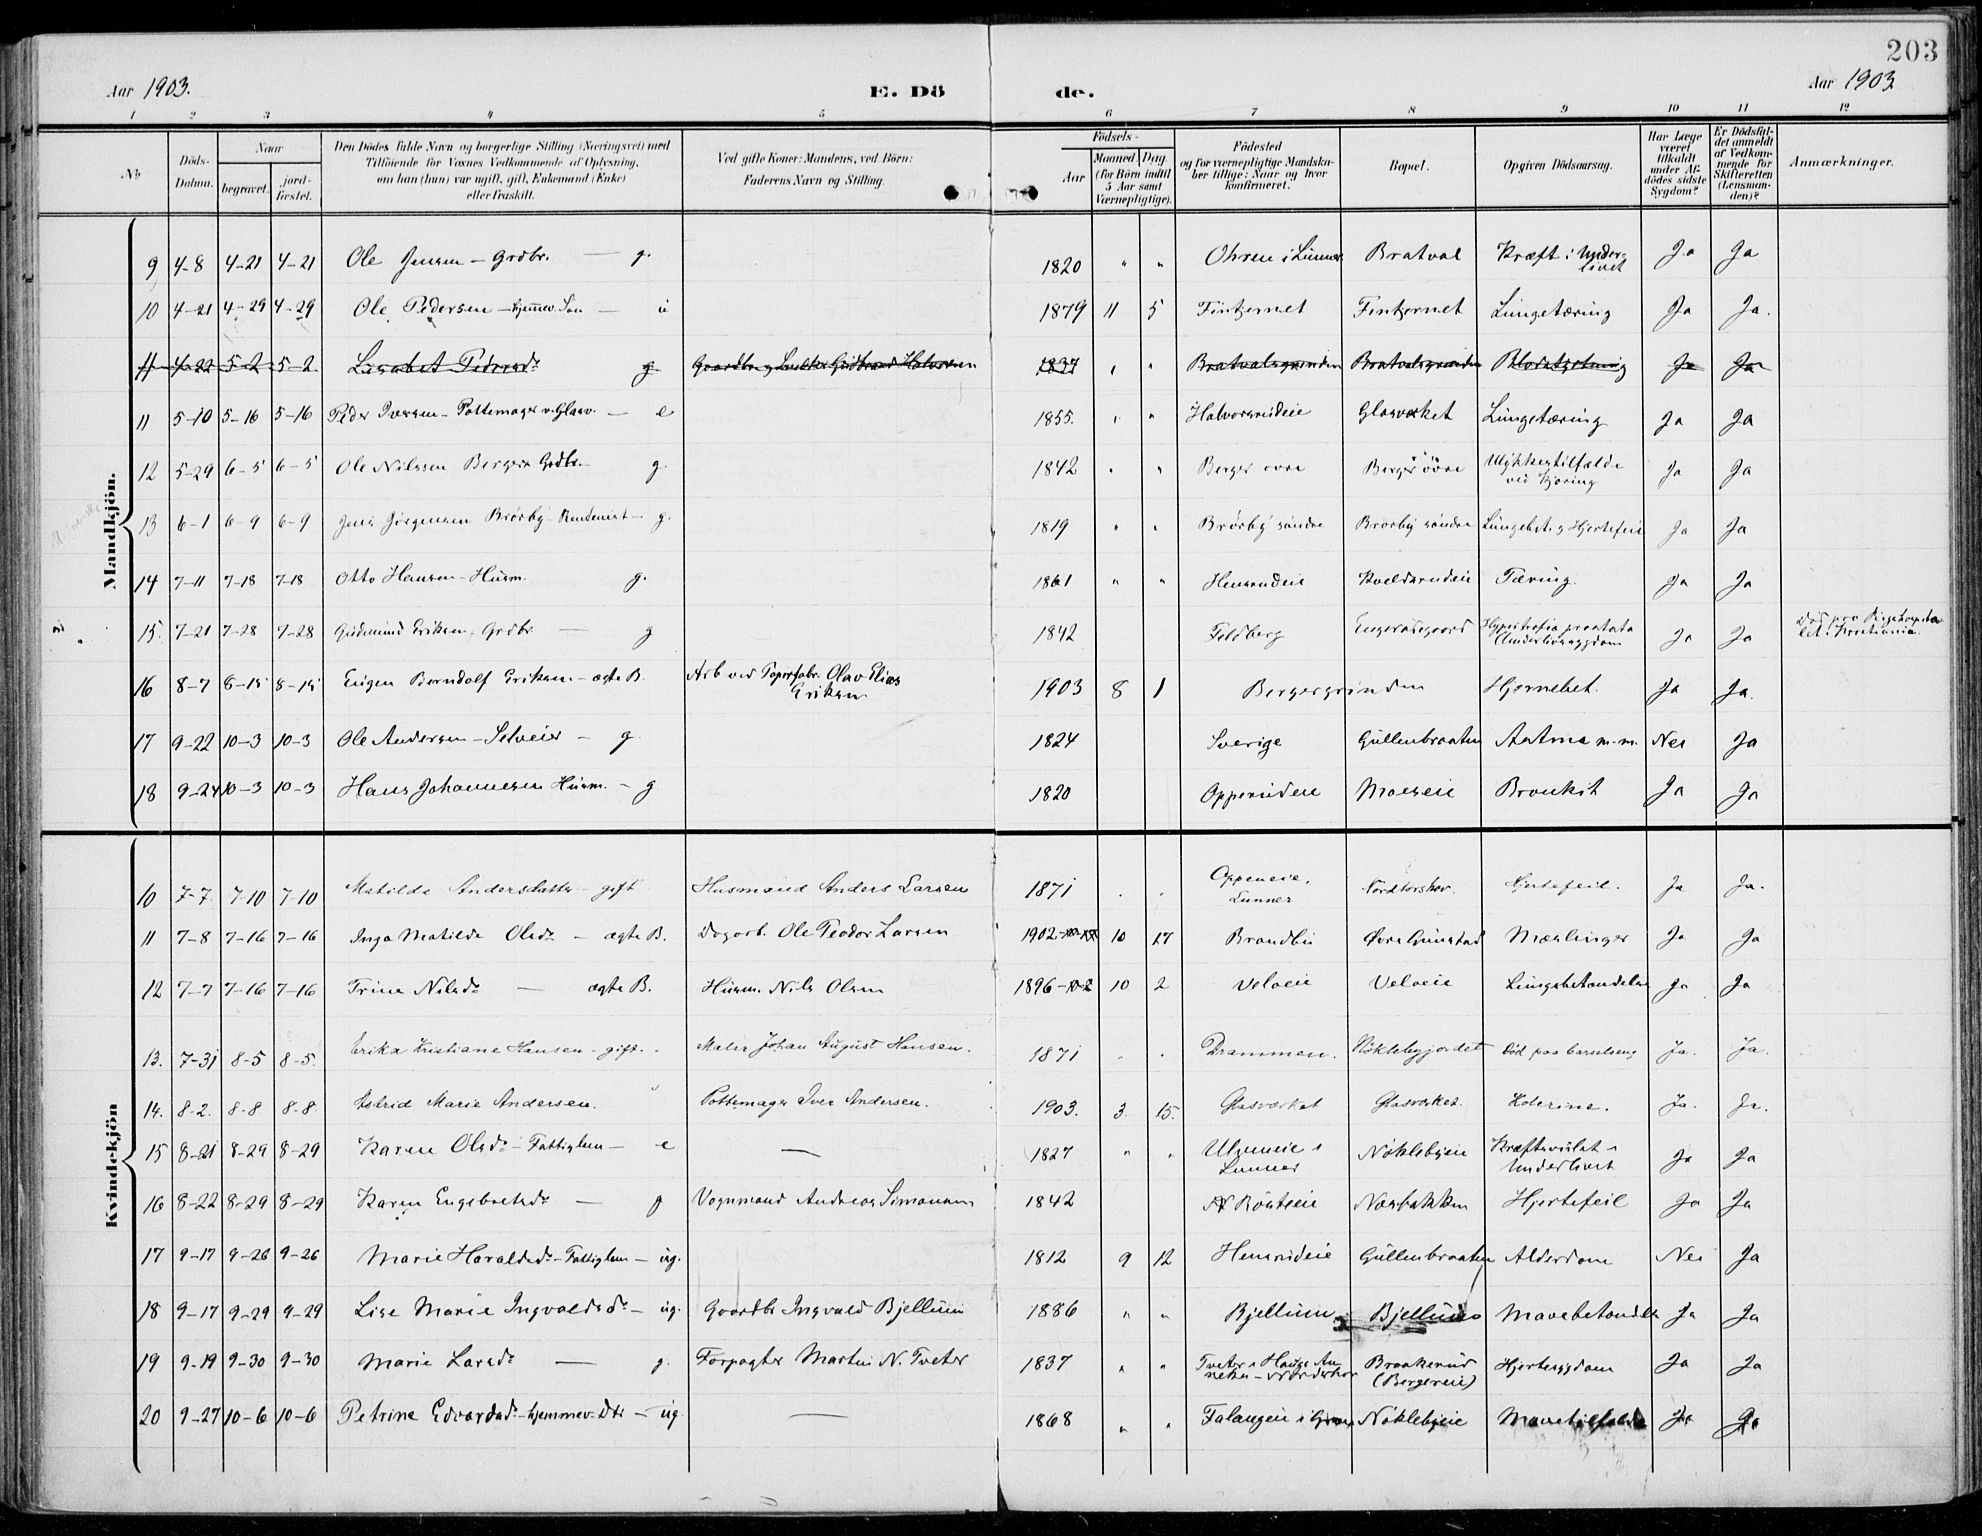 203
Aar 1903.
E. Dö
de.
Aar 1903
1 2 3 4 5 6 7 8 9 10 11 12
No
Döds-
Datum.
Naar
begravet.
jord-
fæstet.
Den Dödes fulde Navn og borgerlige Stilling (Næringsvei) med
Tilföiende for Voxnes Vedkommende af Oplysning,
om han (hun) var ugift, gift, Enkemand (Enke)
eller fraskilt.
Ved gifte Koner: Mandens, ved Börn:
Faderens Navn og Stilling.
Födsels-
Aar
Maaned. Dag.
(for Börn indtil
5 Aar samt
Værnepligtige).
Födested
og for værnepligtige Mandska-
ber tillige: Naar og hvor
konfirmeret.
Bopæl.
Opgiven Dödsaarsag.
Har Læge
været
tilkaldt
under Af-
dödes sidste
Sygdom?
Er Dödsfal-
det anmeldt
af Vedkom-
mende for
Skifteretten
(Lensman-
den)?
Anmærkninger.
Mandkjön.
9 4-8 4-21 4-21 Ole Jensen - Grdbr. — g. 1820 " " Ohren i Lunner Bratval Kræft i Under-
livet Ja Ja
10 4-21 4-29 4-29 Ole Pedersen - hjemmev. Søn — u 1879 11 5 Fintjernet Fintjernet Lungetæring Ja Ja.
11 4-22 5-2 5-2 Lisabet Pedersd. g. 1837 " " Bratvalsgrinden Bratvalsgrinden Ja Ja
11 5-10 5-16 5-16 Peder Iversen - Pottemager v. Glasv. — e 1855. " " Halvorsrudeie Glasværket Lungetæring Ja Ja
12 5-29 6-5 6-5 Ole Nilssen Berger Grdbr. — g. 1842 " " Berger øvre Berger øvre Ulykkestilfælde
ved Kjøring Ja Ja
13 6-1 6-9 6-9 Jens Jørgensen Brørby - g. 1819 " " Brørby søndre Brørby søndre Lungebet. og Hjertefeil Ja Ja
14 7-11 7-18 7-18 Otto Hansen - Husm. g. 1861 " " Hensrudeie Kveldsrudeie Tæring. Ja Ja
15. 7-21 7-28 7-28 Gudmund Eriksen, Grdbr. — g 1842 Feldberg Hypertrofia prostata
Underlivssygdom Ja Ja Død paa Rigshospita-
let i Kristiania.
16 8-7 8-15 8-15 Eugen Berndolf Eriksen - ægte B. Arb ved Papirfabr. Olav Elias
Eriksen 1903 8 1 Bergergrinden Hjernebet. Ja Ja.
17 9-22 10-3 10-3 Ole Andersen - Selveier — g. 1824 Sverige Gullenbraaten Astma m.m. Nei Ja
18 9-24 10-3 10-3 Hans Johannesen Husm. - g 1820 Opperuden Moeseie Bronkit Ja Ja
Kvindekjön
10 7-7. 7-10 7-10 Matilde Andersdatter - gift Husmand Anders Larsen 1871 . . Oppeneie,
Lunner Nordtorshov. Hjertefeil. Ja Ja.
11 7-8 7-16 7-16 Inga Matilde Olsdr — ægte B. Dagarb. Ole Teodor Larsen 1902 10 17 Brandbu Øvre Gunstad Mæslinger Ja Ja
12 7-7 7-16 7-16 Trine Nilsdr — ægte B. Husm. Nils Olsen 1896-10-2 10 2 Veloeie Veloeie Lungebetændelse Ja Ja
13. 7-31 8-5 8-5. Erika Kristiane Hansen - gift. Maler Johan August Hansen. 1871 . . Drammen. Nøklebyjordet Død paa barselseng Ja. Ja.
14. 8-2. 8-8 8-8 Astrid Marie Andersen. Pottemager Iver Andersen. 1903. 3. 15. Glasværket Glasværket. Kolerine. Ja. Ja.
15 8-21 8-29 8-29 Karen Olsdr - Fattiglem — e — 1827 " " Ulvneeie i
Lunner Nøklebyeie Kræftsvulst i
Underlivet Ja Ja
16 8-22 8-29 8-29 Karen Engebretsdr — g Vognmand Andreas Simonsen 1842 N Røisteie Næsbakken Hjertefeil Ja Ja
17 9-17 9-26 9-26 Marie Haraldsdr - Fattiglem — ug. 1812 9 12 Hensrudeie Gullenbraaten Alderdom Nei Ja
18 9-17 9-29 9-29 Lise Marie Ingvaldsdr - ug. Gaardbr Ingvald Bjellum 1886 " " Bjellum Bjellum Mavebetændelse Ja Ja
19 9-19 9-30 9-30 Marie Larsdr — g. Forpagter Martin N. Tveter 1837 " " Braakerud
(Bergereie) Hjertesygdom Ja Ja
20 9-27 10-6 10-6 Petrine Edvardsdr - hjemmev. Dtr — ug. — 1868 " " Falangeie i Gran Nøklebyeie Mavetilfælde Ja Ja